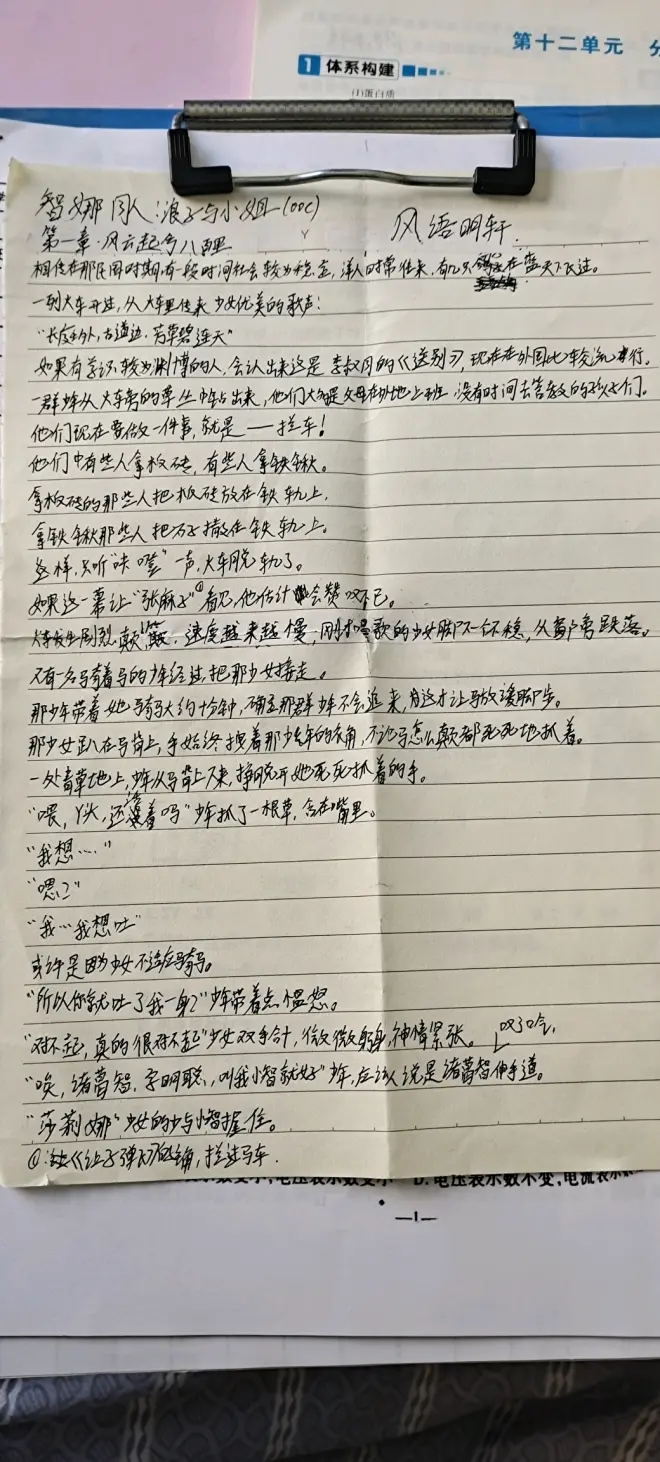 第十二单元 分
1 体系构建
(1)蛋白质
智娜同人:浪子与小姐(OOC)
风语明轩
第一章·风云起兮八百里
相传在那民国时期,有一段时间社会较为稳定,洋人时常往来,有几只在蓝天下飞过。
一列火车开过,从火车里传来少女优美的歌声:
“长庭外,古道边,芳草碧连天”
如果有学识较为渊博的人,会认出来这是李叔同的《送别》,现在在外国比较流行。
一群少年从火车旁的草丛中站出来,他们大多是父母在外地上班,没有时间去管教的孩子们。
他们现在要做一件事,就是——拦车!
他们中有些人拿板砖,有些人拿铁锹。
拿板砖的那些人把板砖放在铁轨上,
拿铁锹那些人把石子撒在铁轨上。
这样,只听“咔嗒”一声,火车脱轨了。
如果这一幕让“张麻子”①看见,他估计会赞叹不已。
火车发生剧烈颠簸,速度越来越慢,刚才唱歌的少女脚下一个不稳,从窗户旁跌落。
又有一名骑着马的少年经过,把那少女接走。
那少年带着她骑马大约十分钟,确定那群少年不会追来,为这才让马放缓脚步。
那少女趴在马背上,手始终拽着那少年的衣角,不论马怎么颠都死死地抓着。
一处青草地上,少年从马背上下来,挣脱开她死死抓着的手。
“喂,丫头,还活着吗”少年抓了一根草,含在嘴里。
“我想……”
“嗯?”
“我…我想吐”
或许是因为少女不适应骑马。
“所以你就吐了我一身?”少年带着点愠怒。
“对不起,真的很对不起”少女双手合计,微微躬身,神情紧张。
叹了口气,
“唉,诸葛智,字明聪,叫我小智就好”少年,应该说是诸葛智伸手道。
“莎莉娜”少女的手与小智握住。
①:《让子弹飞》的主角,拦过马车.
电压表示数变小 D.电压表示数不变,电流表示
—1—